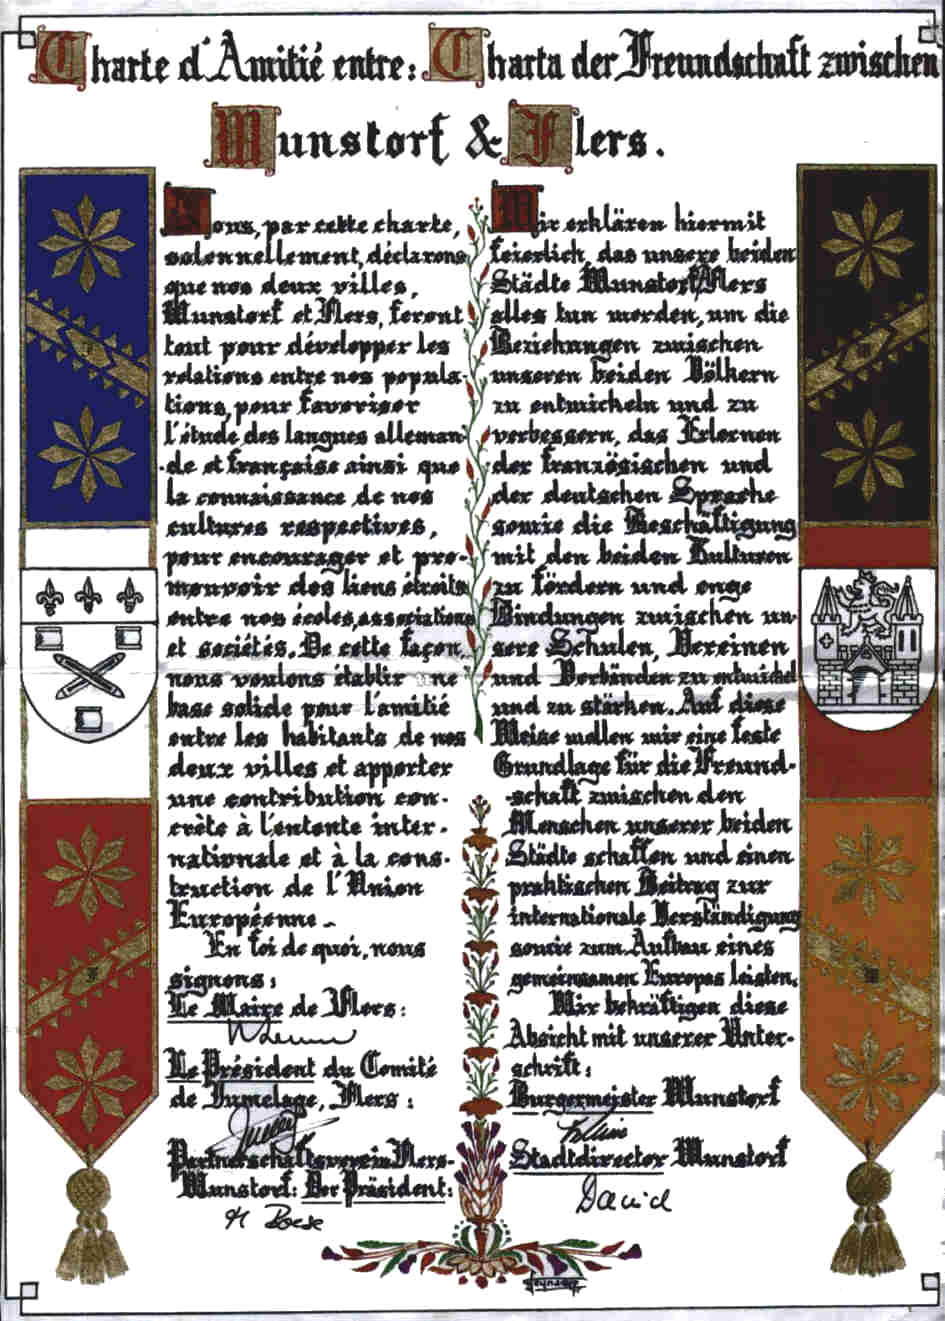 Charte d'Amitié entre: Charta der Freundschaft zwischen
Wunstorf & Flers.
Nous, par cette charte,
solennellement, déclarons
que nos deux villes,
Wunstorf et Flers, feront
tout pour développer les
relations entre nos popula-
tions, pour favoriser
l'étude des langues alleman-
-de et française ainsi que
la connaissance de nos
cultures respectives,
pour encourager et pro-
mouvoir des liens étroits
entre nos écoles, associations
et sociétés. De cette façon,
nous voulons établir une
base solide pour l'amitié
entre les habitants de nos
deux villes et apporter
une contribution con-
crète à l'entente inter-
nationale et à la cons-
truction de l'Union
Européenne.
En foi de quoi, nous
signons:
Le Maire de Flers:
Le Président du Comité
de Jumelage, Flers:
Partnerschaftsverein Flers-
Wunstorf: Der Präsident:
H Boese
Wir erklären hiermit
feierlich, das unsere beiden
Städte Wunstorf/Flers
alles tun werden, um die
Beziehungen zwischen
unseren beiden Völkern
zu entwickeln und zu
verbessern, das Erlernen
der französischen und
der deutschen Sprache
sowie die Beschäftigung
mit den beiden Kulturen
zu fördern und enge
Bindungen zwischen un-
sere Schulen, Vereinen
und Verbänden zu entwickel
und zu stärken. Auf diese
Weise wollen wir eine feste
Grundlage für die Freund-
-schaft zwischen den
Menschen unserer beiden
Städte schaffen und einen
praktischen Beitrag zur
internationale Verständigung
sowie zum Aufbau eines
gemeinsamen Europas leisten.
Wir bekräftigen diese
Absicht mit unserer Unter-
schrift:
Burgermeister Wunstorf
Stadtdirector Wunstorf
David